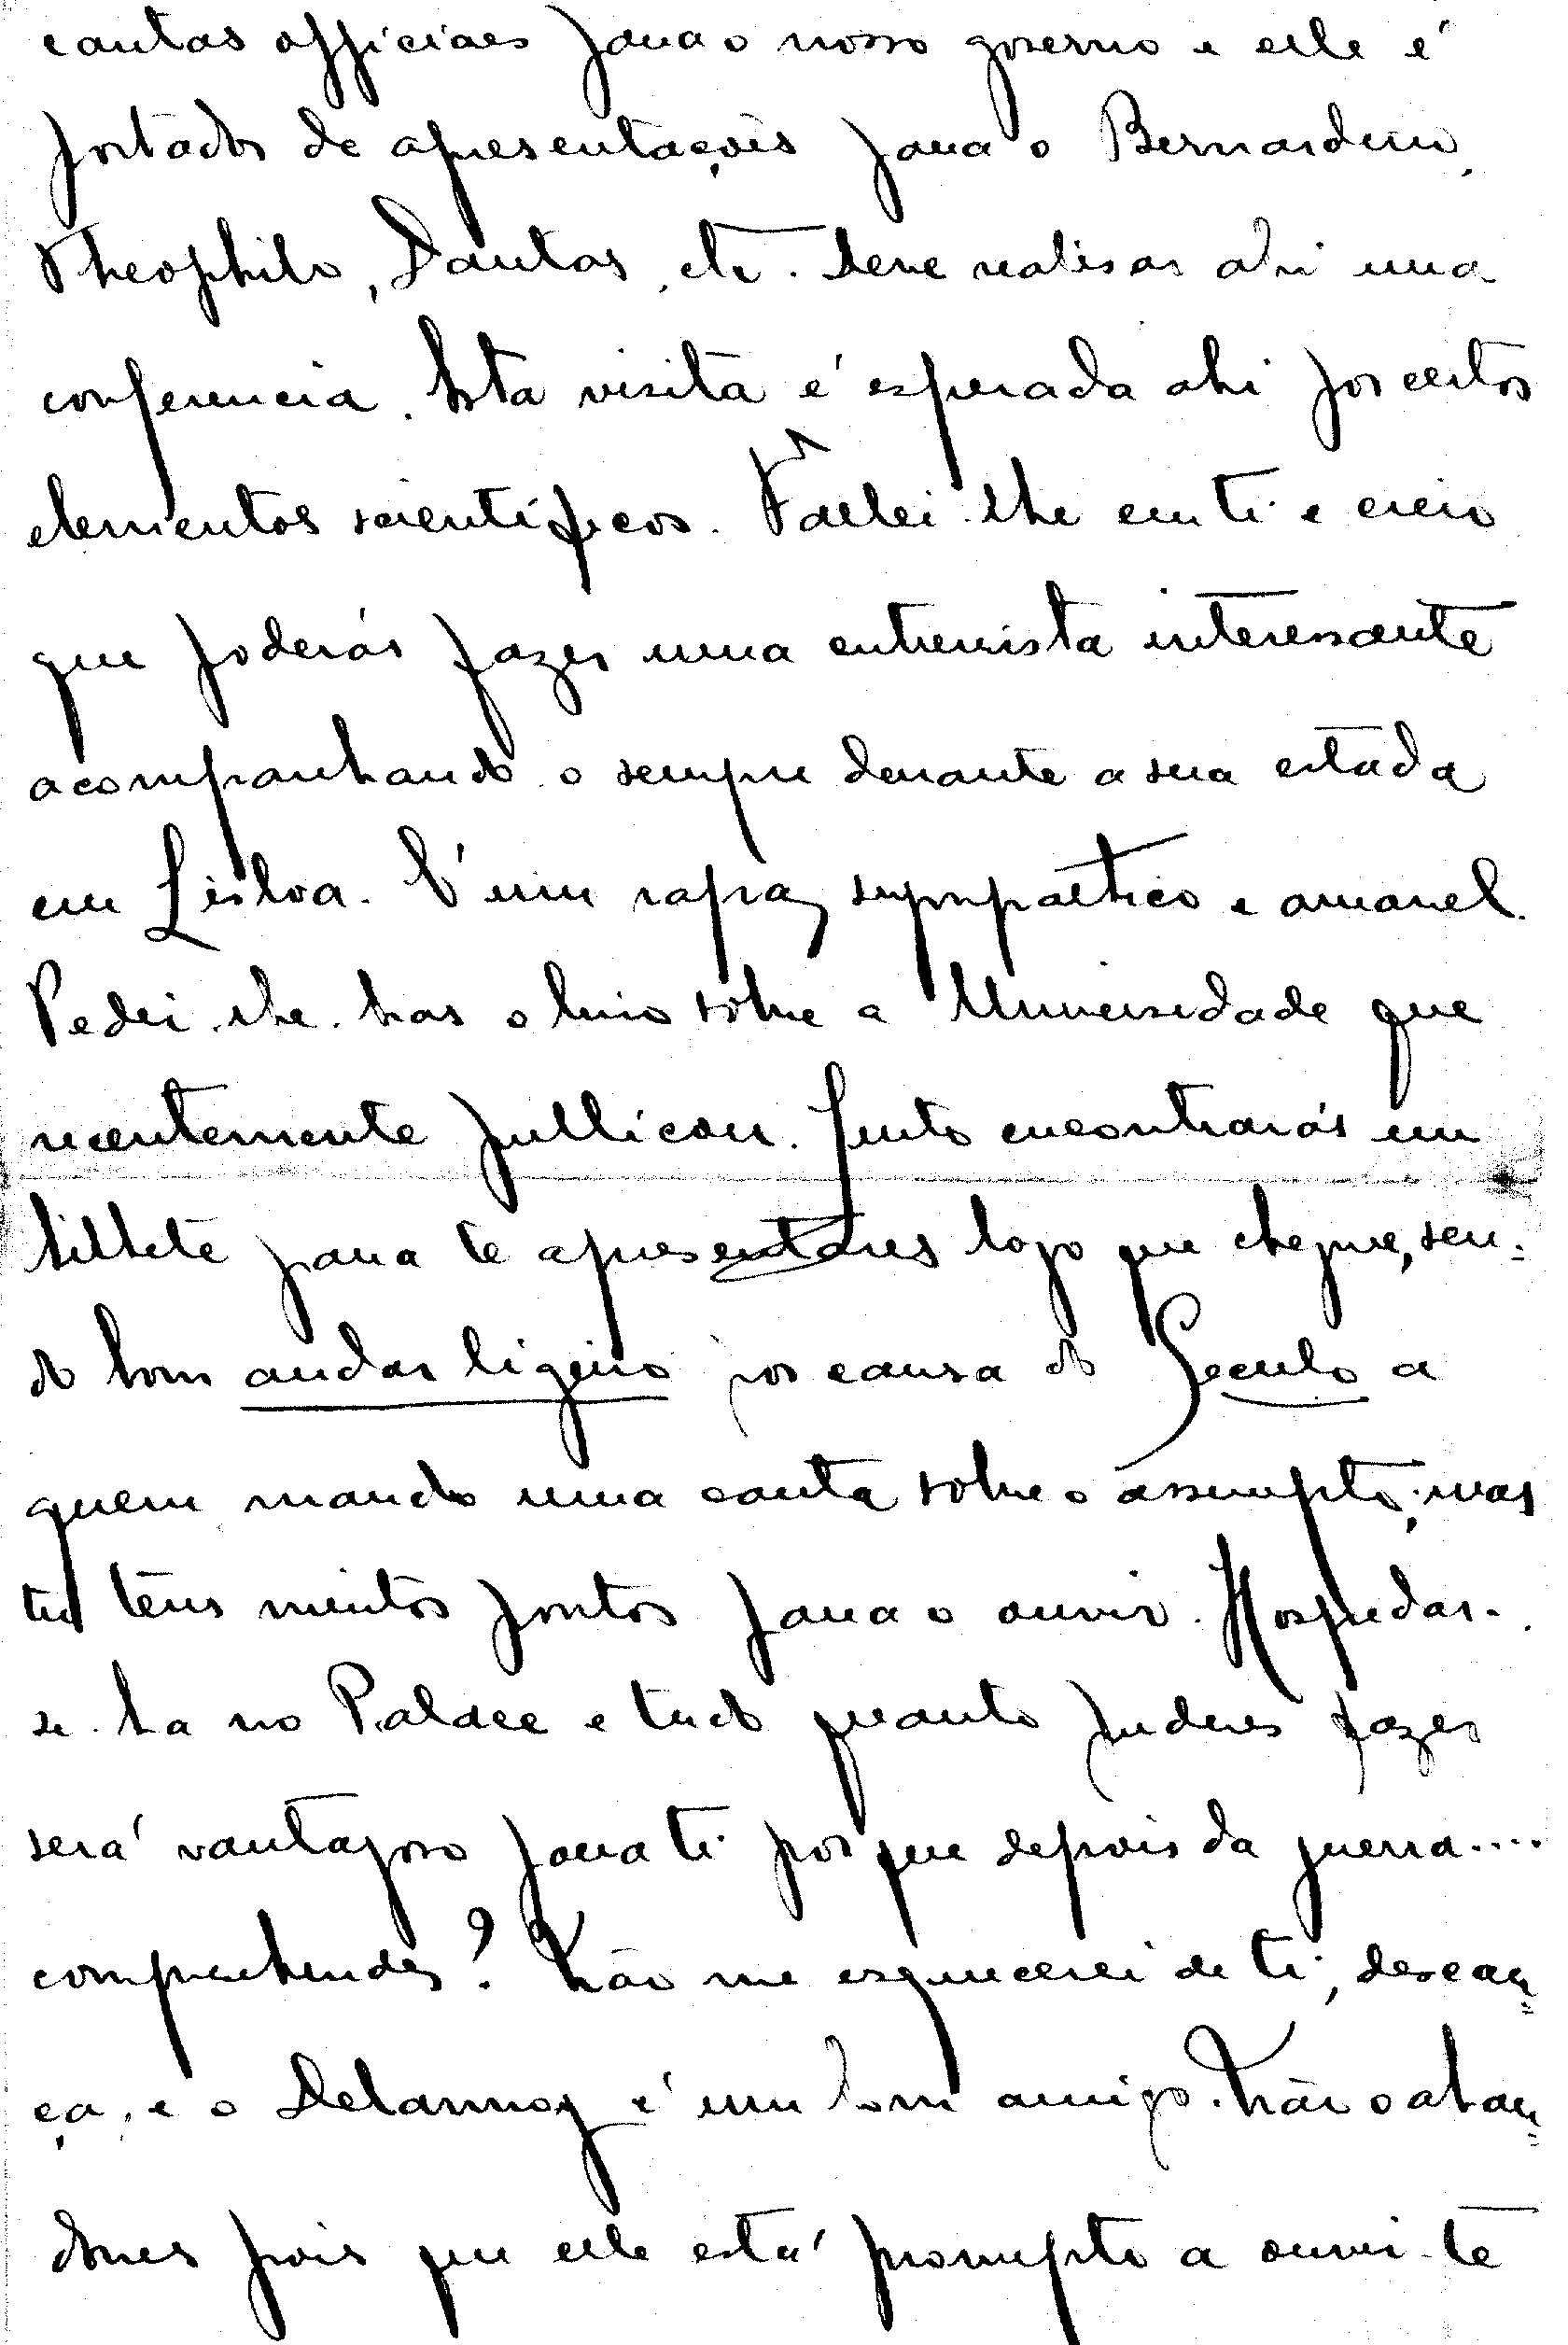 cartas officiaes para o nosso governo e elle é
portador de apresentações para o Bernardino,
Theophilo, Dantas, etc. Deve realisar ahi uma
conferencia. Esta visita é esperada ahi por certos
elementos scientíficos. Fallei-lhe em ti e creio
que poderás fazer uma entrevista interessante
acompanhando-o sempre durante a sua estada
em Lisboa. É um rapaz sympathico e amavel.
Pedir-lhe-has o livro sobre a Universidade que
recentemente publicou. Junto encontrarás um
bilhete para te apresentares logo que chegue, sen-
do bom andar ligeiro por causa do Seculo a
quem mando uma carta sobre o assumpto; mas
tu tens muitos pontos para o ouvir. Hospedar-
se-ha no Palace e tudo quanto puderes fazer
será vantajoso para ti porque depois da guerra....
comprehendes? Não me esquecerei de ti, descan-
ça, e o Delannoy é um bom amigo. Não o aban-
dones pois que elle está prompto a ouvir-te